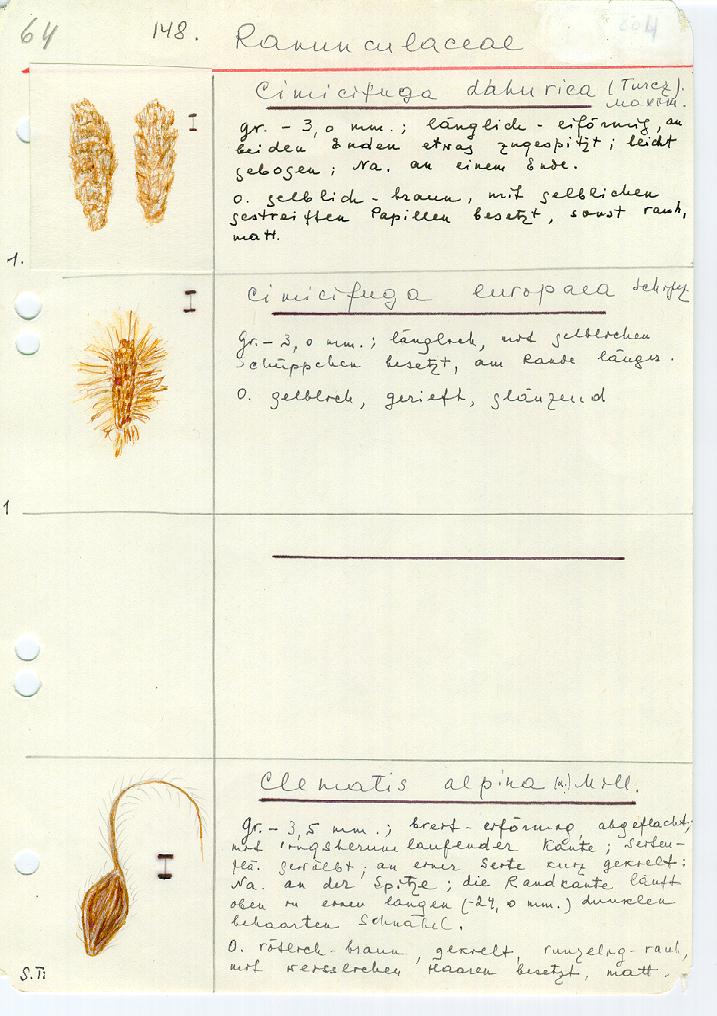 64 148. Ranunculaceae
Cimicifuga dahurica (Turcz).
Maxim.
gr. - 3,0 mm.; länglich - eiförmig, an
beiden Enden etwas zugespitzt; leicht
gebogen; Na. an einem Ende.
O. gelblich - braun, mit gelblichen
gestreiften Papillen besetzt, sonst rauh,
matt.
1.
Cimicifuga europaea
gr. - 3,0 mm.; länglich, mit gelblichen
Schüppchen besetzt, am Rande länger.
O. gelblich, gerieft, glänzend
1
Clematis alpina (L.) Mill.
gr. - 3,5 mm.; breit - eiförmig, abgeflacht;
mit ringsherumlaufender Kante; Seiten-
flä. gewölbt; an einer Seite kurz gekielt;
Na. an der Spitze; die Randkante läuft
oben in einen langen (-24,0 mm.) dunklen
behaarten Schnabel.
O. rötlich - braun, gekielt, runzelig - rauh,
mit weisslichen Haaren besetzt, matt.